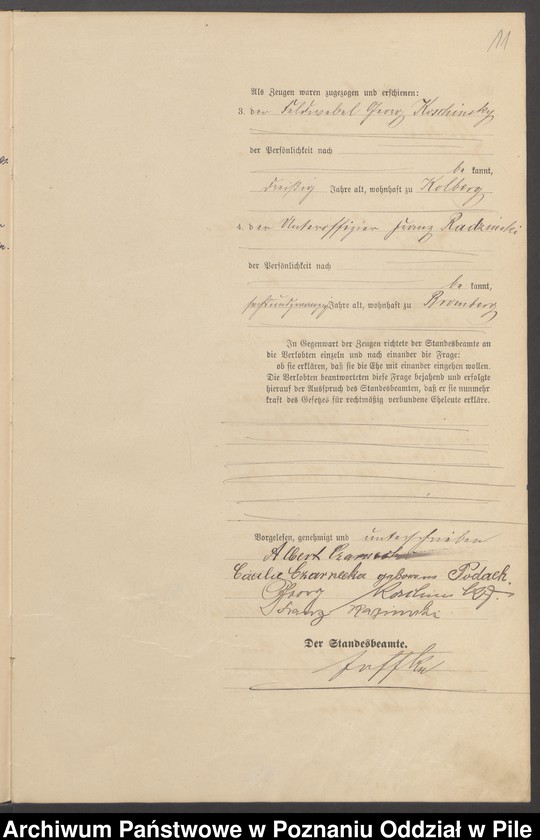 11
Als Zeugen waren zugezogen und erschienen:
3. der Feldwebel Georg Koschinsky
der Persönlichkeit nach
be kannt,
dreißig Jahre alt, wohnhaft zu Kolberg
4. der Unteroffizier Franz Radzinski
der Persönlichkeit nach
be kannt,
sechsundzwanzig Jahre alt, wohnhaft zu Bromberg
In Gegenwart der Zeugen richtete der Standesbeamte an
die Verlobten einzeln und nach einander die Frage:
ob sie erklären, daß sie die Ehe mit einander eingehen wollen.
Die Verlobten beantworteten diese Frage bejahend und erfolgte
hierauf der Ausspruch des Standesbeamten, daß er sie nunmehr
kraft des Gesetzes für rechtmäßig verbundene Eheleute erkläre.
Vorgelesen, genehmigt und unterschrieben
Albert
Cäcilie Czarnecka geborene Podack.
Georg
Franz
Der Standesbeamte.
Archiwum Państwowe w Poznaniu Oddział w Pile